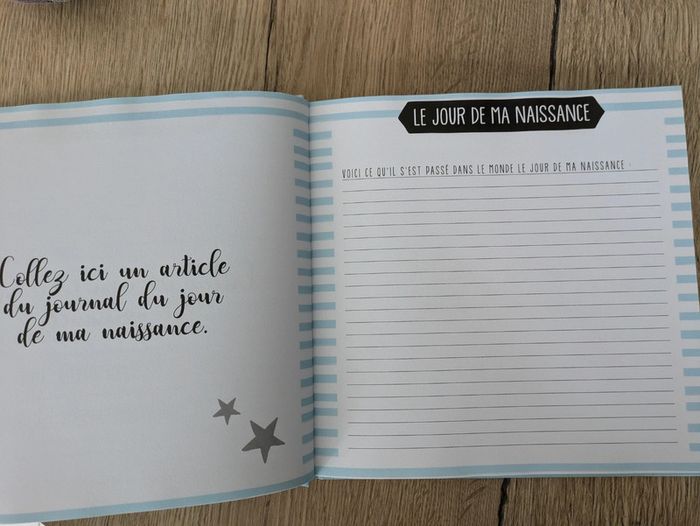 Collez ici un article
du journal du jour
de ma naissance.
LE JOUR DE MA NAISSANCE
VOICI CE QU'IL S'EST PASSÉ DANS LE MONDE LE JOUR DE MA NAISSANCE :